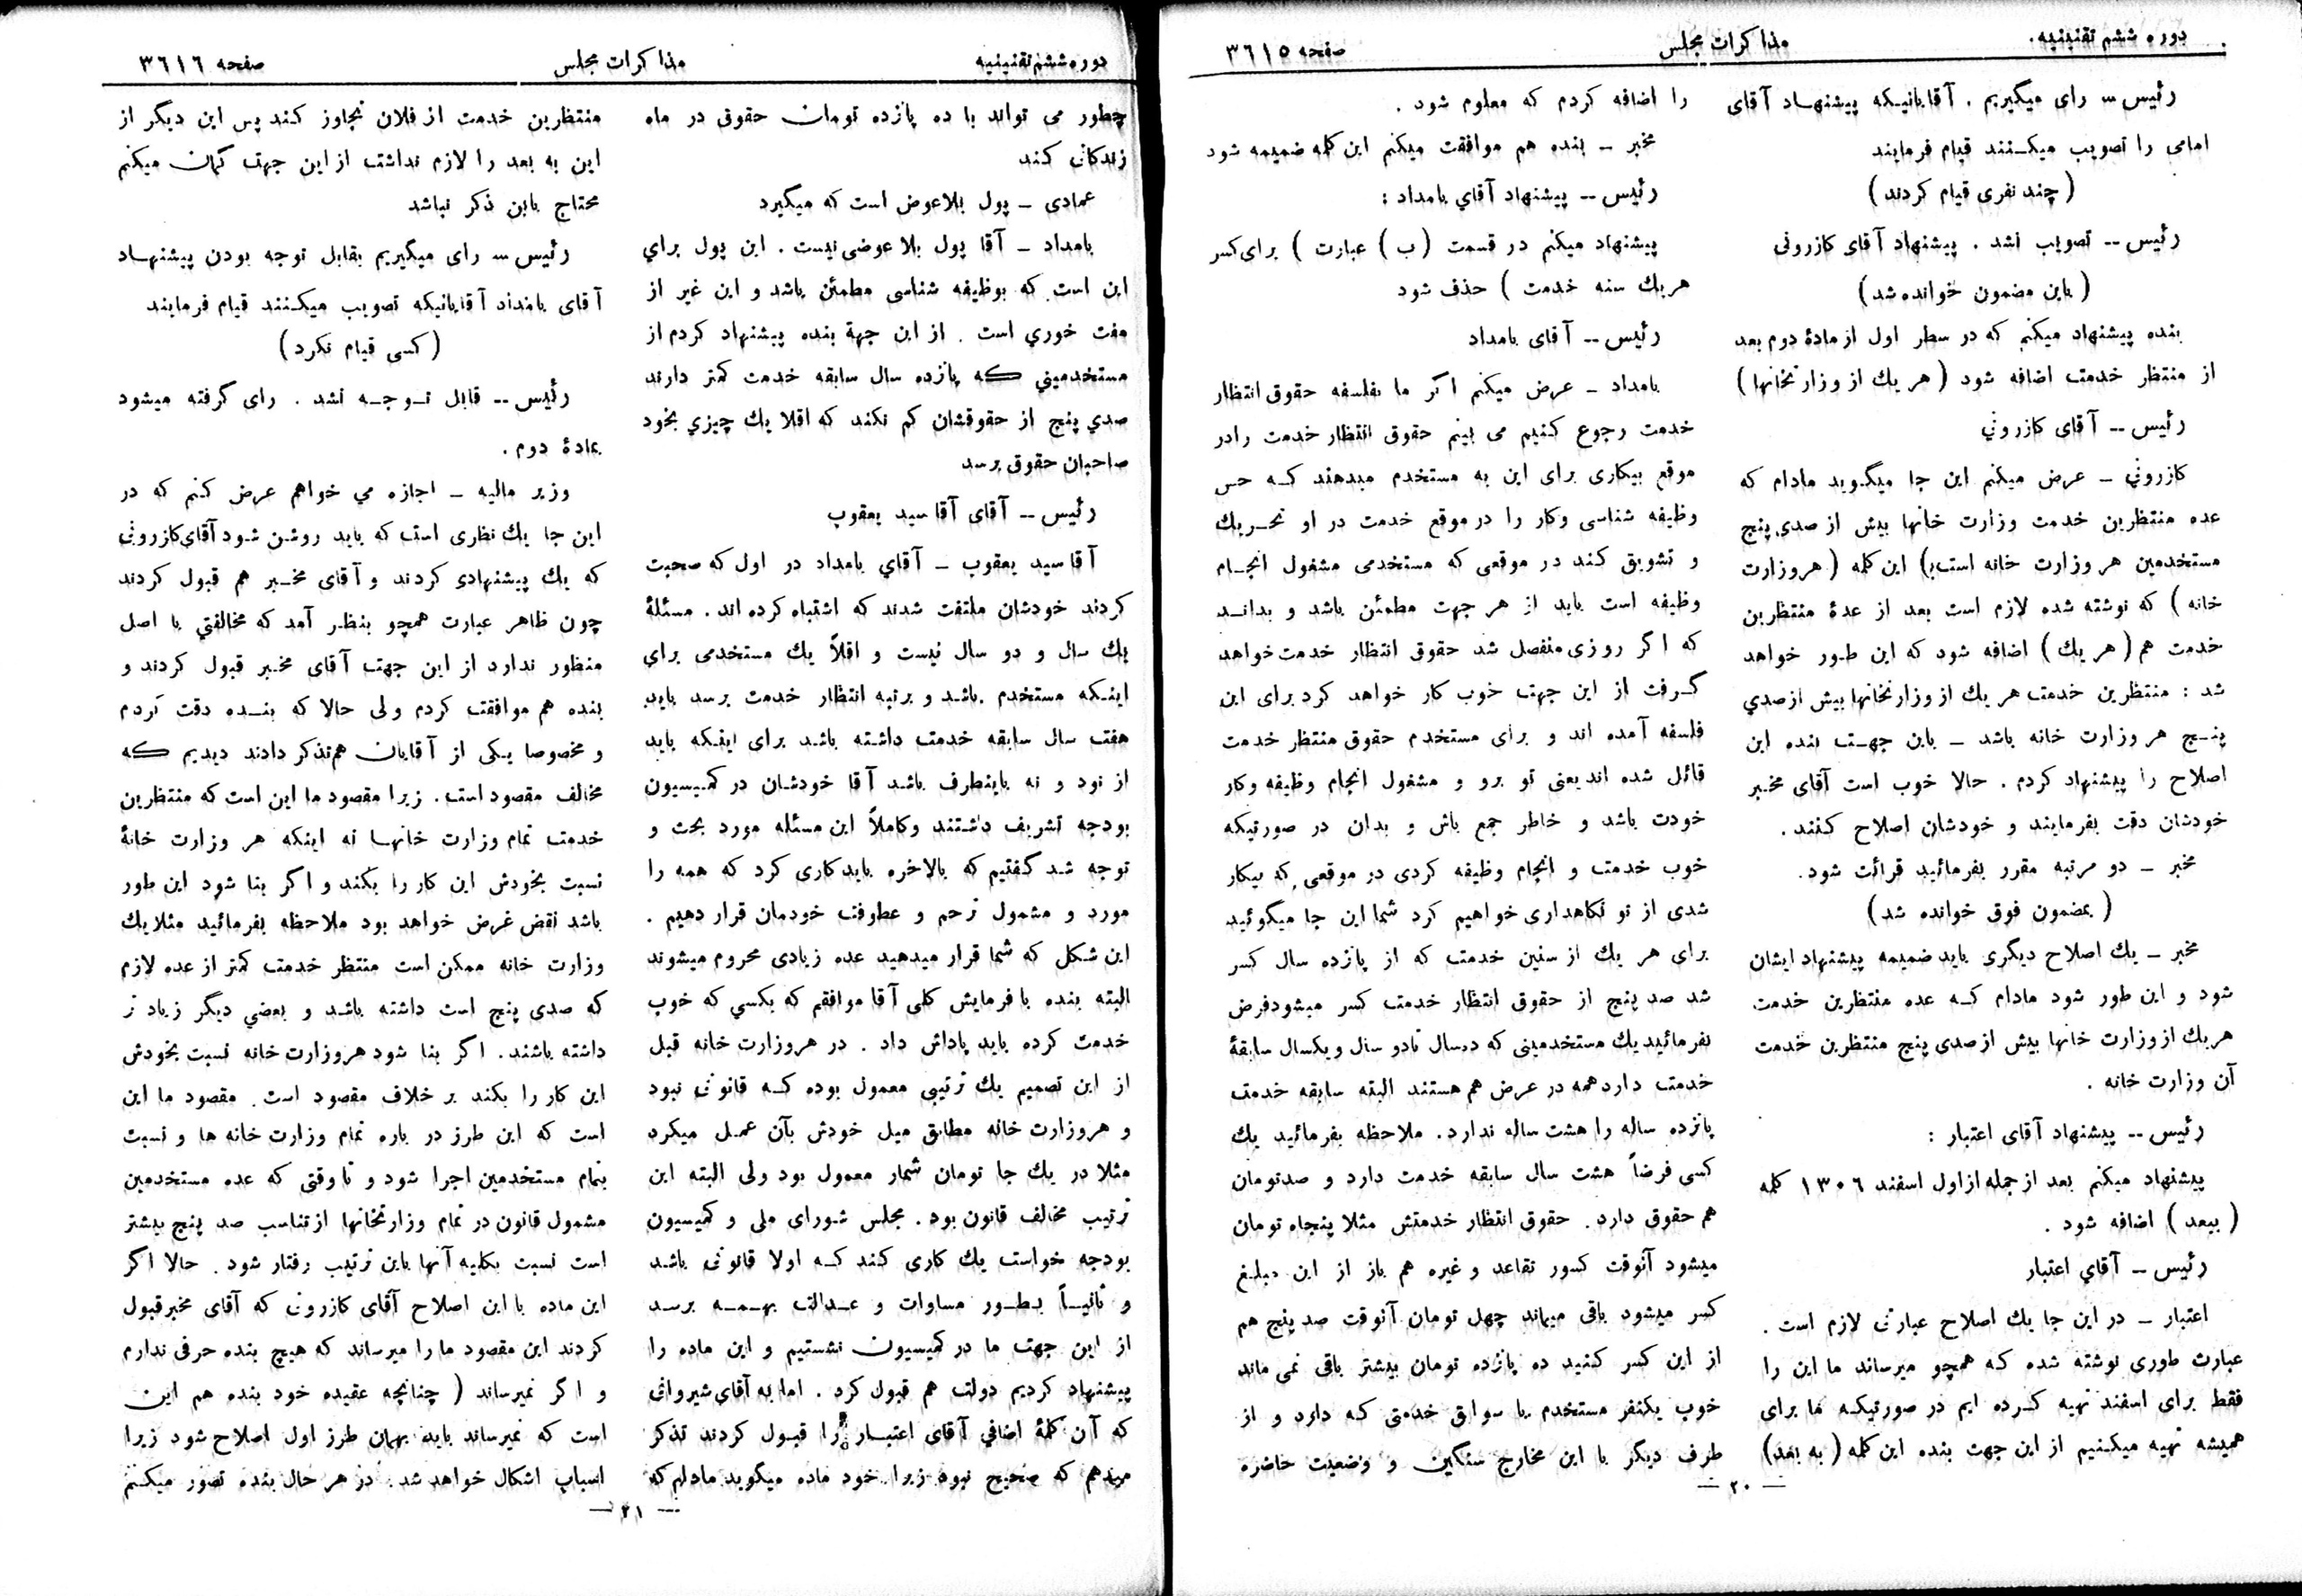 دوره ششم تقنینیه
مذاکرات مجلس
صفحه ٣٦١٥
رئیس — رای میگیریم . آقایانیکه پیشنهاد آقای
امامی را تصویب میکنند قیام فرمایند
( چند نفری قیام کردند )
رئیس -- تصویب نشد . پیشنهاد آقای کازرونی
( باین مضمون خوانده شد )
بنده پیشنهاد میکنم که در سطر اول از مادهٔ دوم بعد
از منتظر خدمت اضافه شود ( هر یك از وزارتخانها )
رئیس -- آقای کازرونی
کازرونی – عرض میکنم این جا میگوید مادام که
عده منتظرین خدمت وزارت خانها بیش از صدی پنج
مستخدمین هر وزارت خانه است ) این کلمه ( هر وزارت
خانه ) که نوشته شده لازم است بعد از عدهٔ منتظرین
خدمت هم ( هر یك ) اضافه شود که این طور خواهد
شد : منتظرین خدمت هر یك از وزارتخانها بیش از صدي
پنج هر وزارت خانه باشد – باین جهت بنده این
اصلاح را پیشنهاد کردم . حالا خوب است آقای مخبر
خودشان دقت بفرمایند و خودشان اصلاح کنند .
مخبر – دو مرتبه مقرر بفرمائید قرائت شود .
( بمضمون فوق خوانده شد )
مخبر – یك اصلاح دیگری باید ضمیمه پیشنهاد ایشان
شود و این طور شود مادام که عده منتظرین خدمت
هریك از وزارت خانها بیش از صدی پنج منتظرین خدمت
آن وزارت خانه .
رئیس -- پیشنهاد آقای اعتبار :
پیشنهاد میکنم بعد از جمله از اول اسفند ١٣٠٦ کلمه
( ببعد ) اضافه شود .
رئیس – آقاي اعتبار
اعتبار – در این جا یك اصلاح عبارتی لازم است .
عبارت طوری نوشته شده که همچو میرساند ما این را
فقط برای اسفند تهیه کرده ایم در صورتیکه ما برای
همیشه تهیه میکنیم از این جهت بنده این کلمه ( به بعد )
را اضافه کردم که معلوم شود .
مخبر – بنده هم موافقت میکنم این کلمه ضمیمه شود
رئیس -- پیشنهاد آقاي بامداد :
پیشنهاد میکنم در قسمت ( ب ) عبارت ) برای کسر
هریك سنه خدمت ) حذف شود
رئیس -- آقای بامداد
بامداد – عرض میکنم اگر ما بفلسفه حقوق انتظار
خدمت رجوع کنیم می بینم حقوق انتظار خدمت را در
موقع بیکاری برای این به مستخدم میدهند که حس
وظیفه شناسی وکار را در موقع خدمت در او تحریك
و تشویق کند در موقعی که مستخدمی مشغول انجام
وظیفه است باید از هر جهت مطمئن باشد و بداند
که اگر روزی منفصل شد حقوق انتظار خدمت خواهد
گرفت از این جهت خوب کار خواهد کرد برای این
فلسفه آمده اند و برای مستخدم حقوق منتظر خدمت
قائل شده اند یعنی تو برو و مشغول انجام وظیفه وکار
خودت باشد و خاطر جمع باش و بدان در صورتیکه
خوب خدمت و انجام وظیفه کردی در موقعی که بیکار
شدی از تو نگاهداری خواهیم کرد شما این جا میگوئید
برای هر یك از سنین خدمت که از پانزده سال کسر
شد صد پنج از حقوق انتظار خدمت کسر میشود فرض
بفرمائید یك مستخدمینی که دهسال تا دو سال و یکسال سابقهٔ
خدمت دارد همه در عرض هم هستند البته سابقه خدمت
پانزده ساله را هشت ساله ندارد . ملاحظه بفرمائید یك
کسی فرضاً هشت سال سابقه خدمت دارد و صد تومان
هم حقوق دارد . حقوق انتظار خدمتش مثلا پنجاه تومان
میشود آنوقت کسور تقاعد و غیره هم باز از این مبلغ
کسر میشود باقی میماند چهل تومان آنوقت صد پنج هم
از این کسر کنید ده پانزده تومان بیشتر باقی نمی ماند
خوب یکنفر مستخدم با سوابق خدمتی که دارد و از
طرف دیگر با این مخارج سنگین و وضعیت حاضره
— ٢٠ —
دوره ششم تقنینیه
مذاکرات مجلس
صفحه ٣٦١٦
چطور می تواند با ده پانزده تومان حقوق در ماه
زندگانی کند
عمادی – پول بلاعوض است که میگیرد
بامداد – آقا پول بلا عوضی نیست . این پول براي
این است که بوظیفه شناسی مطمئن باشد و این غیر از
مفت خوري است . از این جهة بنده پیشنهاد کردم از
مستخدمیني که پانزده سال سابقه خدمت کمتر دارند
صدي پنج از حقوقشان کم نکند که اقلا یك چیزي بخود
صاحبان حقوق برسد
رئیس -- آقای آقا سید یعقوب
آقا سید یعقوب – آقاي بامداد در اول که صحبت
کردند خودشان ملتفت شدند که اشتباه کرده اند . مسئلهٔ
یك سال و دو سال نیست و اقلاً یك مستخدمی برای
اینکه مستخدم باشد و برتبه انتظار خدمت برسد باید
هفت سال سابقه خدمت داشته باشد برای اینکه باید
از نود و نه باینطرف باشد آقا خودشان در کمیسیون
بودجه تشریف داشتند وکاملاً این مسئله مورد بحث و
توجه شد گفتیم که بالاخره باید کاری کرد که همه را
مورد و مشمول ترحم و عطوفت خودمان قرار دهیم .
این شکل که شما قرار میدهید عده زیادی محروم میشوند
البته بنده با فرمایش کلی آقا موافقم که بکسي که خوب
خدمت کرده باید پاداش داد . در هر وزارت خانه قبل
از این تصمیم یك ترتیبی معمول بوده که قانونی نبود
و هر وزارت خانه مطابق میل خودش بآن عمل میکرد
مثلا در یك جا تومان شمار معمول بود ولی البته این
ترتیب مخالف قانون بود . مجلس شورای ملی و کمیسیون
بودجه خواست یك کاری کند که اولا قانونی باشد
و ثانیاً بطور مساوات و عدالت بهمه برسد
از این جهت ما در کمیسیون نشستیم و این ماده را
پیشنهاد کردیم دولت هم قبول کرد . اما به آقای شیروانی
که آن کلمهٔ اضافي آقای اعتبار را قبول کردند تذکر
میدهم که صحیح نبود زیرا خود ماده میگوید مادام که
منتظرین خدمت از فلان تجاوز کند پس این دیگر از
این به بعد را لازم نداشت از این جهت گمان میکنم
محتاج باین ذکر نباشد
رئیس — رای میگیریم بقابل توجه بودن پیشنهاد
آقای بامداد آقایانیکه تصویب میکنند قیام فرمایند
( کسی قیام نکرد )
رئیس -- قابل توجه نشد . رای گرفته میشود
بمادهٔ دوم .
وزیر مالیه – اجازه می خواهم عرض کنم که در
این جا یك نظری است که باید روشن شود آقای کازرونی
که یك پیشنهادی کردند و آقای مخبر هم قبول کردند
چون ظاهر عبارت همچو بنظر آمد که مخالفتي با اصل
منظور ندارد از این جهت آقای مخبر قبول کردند و
بنده هم موافقت کردم ولی حالا که بنده دقت کردم
و مخصوصا یکی از آقایان هم تذکر دادند دیدیم که
مخالف مقصود است . زیرا مقصود ما این است که منتظرین
خدمت تمام وزارت خانها نه اینکه هر وزارت خانهٔ
نسبت بخودش این کار را بکند و اگر بنا شود این طور
باشد نقض غرض خواهد بود ملاحظه بفرمائید مثلا یك
وزارت خانه ممکن است منتظر خدمت کمتر از عده لازم
که صدی پنج است داشته باشد و بعضي دیگر زیاد تر
داشته باشند . اگر بنا شود هر وزارت خانه نسبت بخودش
این کار را بکند بر خلاف مقصود است . مقصود ما این
است که این طرز در باره تمام وزارت خانه ها و نسبت
بتمام مستخدمین اجرا شود و تا وقتی که عده مستخدمین
مشمول قانون در تمام وزارتخانها از تناسب صد پنج بیشتر
است نسبت بکلیه آنها باین ترتیب رفتار شود . حالا اگر
این ماده با این اصلاح آقای کازرونی که آقای مخبر قبول
کردند این مقصود ما را میرساند که هیچ بنده حرفی ندارم
و اگر نمیرساند ( چنانچه عقیده خود بنده هم این
است که نمیرساند باید بهمان طرز اول اصلاح شود زیرا
اسباب اشکال خواهد شد . در هر حال بنده تصور میکنم
— ٢١ —